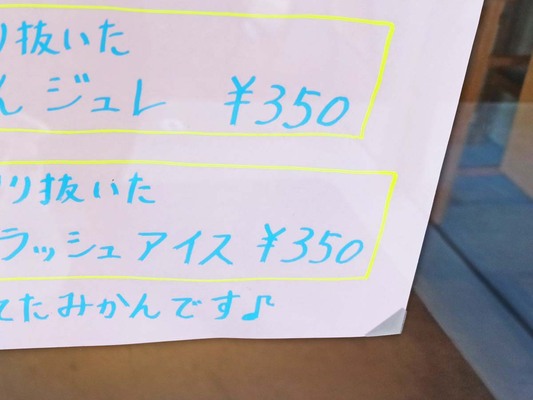 り抜いた
んジュレ ¥350
り抜いた
ラッシュアイス ¥350
てたみかんです♪